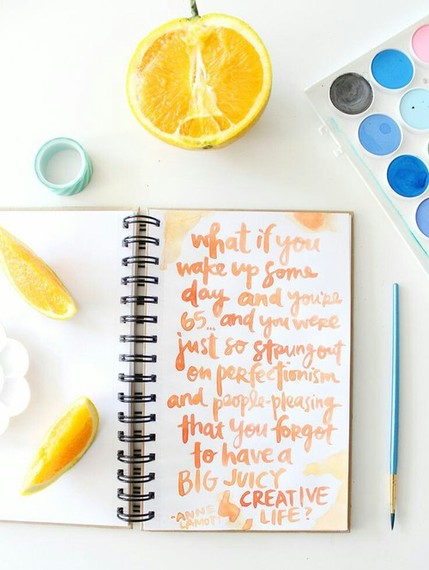 what if you
wake up some
day and you're
65... and you were
just so strung out
on perfectionism
and people-pleasing
that you forgot
to have a
BIG JUICY
CREATIVE
LIFE?
-ANNE
LAMOTT